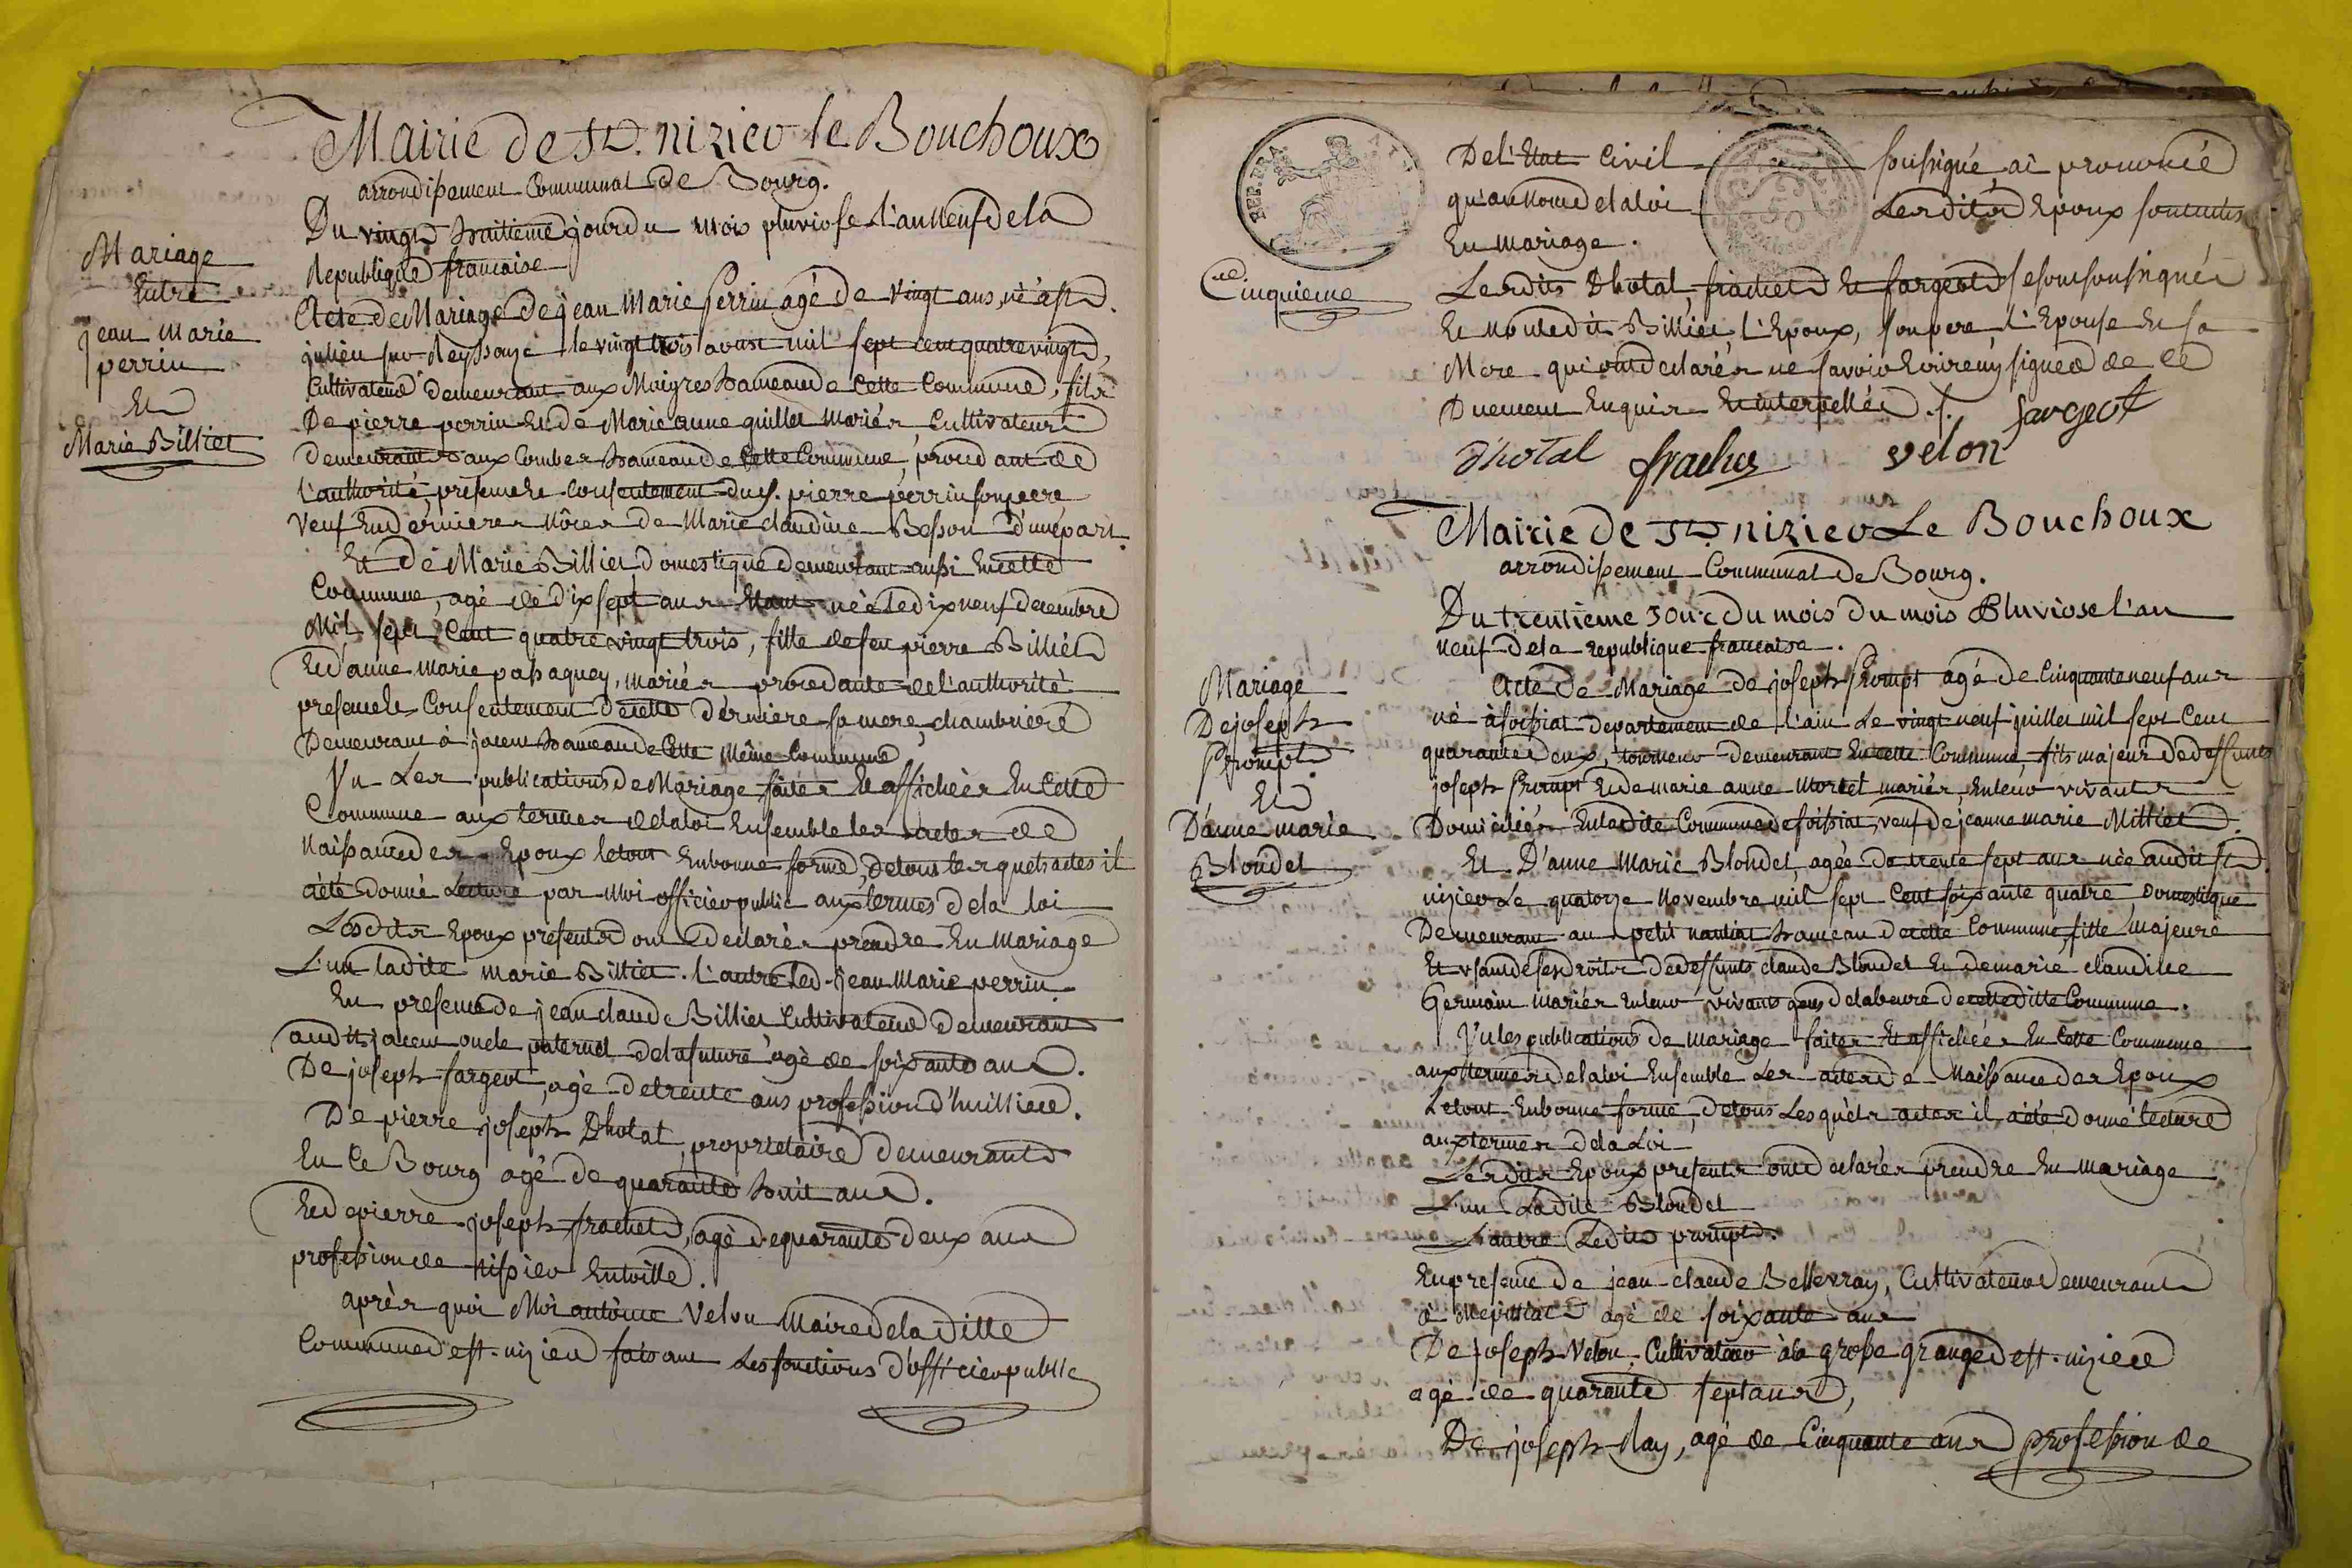 Mairie de St. nizier le Bouchoux
arrondissement Communal de Bourg.
Du vingt huitieme jour du mois pluviose l'an Neuf de la
Republique francaise
Mariage
Entre
jean marie
perrin
Et
Marie Billiet
Acte de Mariage de jean Marie Perrin agé de vingt ans, né a st
julien sur Reyssouze le vingt trois aoust mil sept cent quatre vingt,
Cultivateur demeurant aux Maigres hameau de Cette Commune, fils
De pierre perrin Et de Marie anne quillet mariés Cultivateurs
demeurants aux Combes hameau de Cette Commune, procedant de
l'authorité, presence Et Consentement dud. pierre perrin son pere
Veuf En dernieres Nôces de Marie claudine Besson d'une part.
Et de Marie Billiet domestique demeurant aussi En cette
Commune, agé de dix sept ans Etant née Le dix neuf decembre
Mil sept Cent quatre vingt trois, fille de feu pierre Billiet
Et d'anne marie pasaquey, mariés procedante de l'authorité
presence Et Consentement de cette derniere sa mere, chambriere
Demeurant à jacem hameau de Cette Même Commune
Vu Les publications de Mariage faites Et affichées En Cette
Commune aux termes de la loi Ensemble les actes de
Naissance des Epoux le tout En bonne forme, de tous les quels actes il
a été donné Lecture par Moi officier public aux termes de la loi
Lesdits Epoux presents ont declarés prendre En Mariage
L'un ladite marie Billiet. l'autre Led. jean Marie perrin
En presence de jean claude Billiet Cultivateur Demeurant
audit jacem oncle paternel de la future agé de soixante ans.
De joseph sargeot, agé de trente ans profession d'huillier.
De pierre joseph Dhotal, proprietaire demeurant
En Ce Bourg agé de quarante huit ans.
Et de pierre joseph frachet, agé de quarante deux ans
profession de tissier En toille.
après quoi Moi antoine Velon Maire de la ditte
Commune de st. nizier faisant Les fonctions d'officier public
BEP. FRA.
De l'Etat Civil soussigné, ai prononcé
qu'au Nom de la loi Lesdits Epoux sont unis
En mariage.
Cinquieme
Lesdits Dhotal, frachet Et sargeot se sont soussignés
Et Non Ledit Billiet, L'Epoux, son pere, L'Epouse Et sa
Mere qui ont declarés ne savoir Ecrire ny signer de ce
Duement Enquis Et interpellés ./.
sargeot
Dhotal frachet velon
Mairie de St. nizier Le Bouchoux
arrondissement Communal de Bourg.
Du trentieme Jour du mois du mois Pluviose l'an
neuf de la republique francaise.
Mariage
De joseph
Prompt
Et
D'anne marie
Blondel
Acte de Mariage de joseph Prompt agé de Cinquante neuf ans
né à foissiat departement de l'ain Le vingt neuf juillet mil sept Cent
quarante deux, tourneur demeurant En cette Commune, fils majeur de deffunts
joseph Prompt Et de marie anne Mortel mariés, En leur vivants
Domiciliés En ladite Commune de foissiat, veuf de jeanne marie Milliet
Et D'anne Marie Blondel, agée de trente sept ans née audit st
nizier Le quatorze Novembre mil sept Cent soixante quatre Domestique
Demeurant au petit nantiat hameau de cette Commune, fille majeure
Et usant de ses droits de deffunts claude Blondel Et de marie claudine
Germain mariés En leur vivants gens de labeure de cette ditte Commune.
Vu les publications de mariage faites Et affichées En Cette Commune
aux termes de la loi Ensemble Les actes de Naissance des Epoux
Le tout En bonne forme, de tous Les quels actes il a été donné lecture
aux termes de la Loi
Lesdits Epoux presents ont declarés prendre En mariage
L'un Ladite Blondel
L'autre Ledit prompt.
En presence de jean claude Bellevray, Cultivateur demeurant
à Mépilliat agé de soixante ans
De joseph Velon, Cultivateur à la grosse grange de st. nizier
agé de quarante sept ans,
De joseph Ray, agé de Cinquante ans profession de